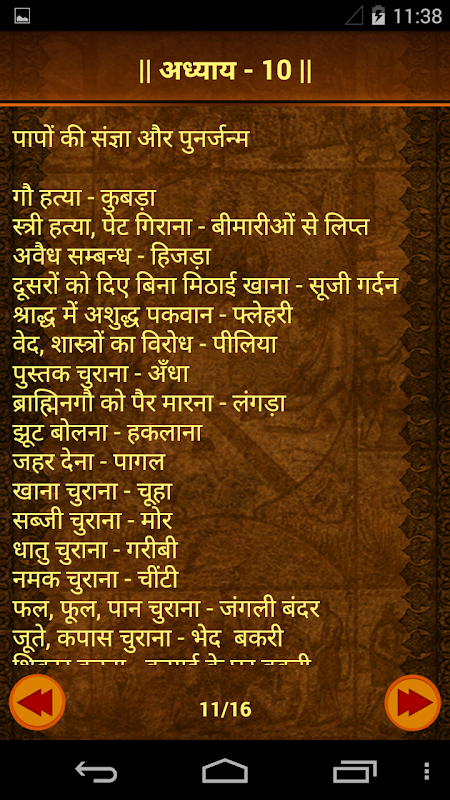 11:38
|| अध्याय - 10 ||
पापों की संज्ञा और पुनर्जन्म
गौ हत्या - कुबड़ा
स्त्री हत्या, पेट गिराना - बीमारीओं से लिप्त
अवैध सम्बन्ध - हिजड़ा
दूसरों को दिए बिना मिठाई खाना - सूजी गर्दन
श्राद्ध में अशुद्ध पकवान - फ्लेहरी
वेद, शास्त्रों का विरोध - पीलिया
पुस्तक चुराना - अँधा
ब्राह्मिनगौ को पैर मारना - लंगड़ा
झूट बोलना - हकलाना
जहर देना - पागल
खाना चुराना - चूहा
सब्जी चुराना - मोर
धातु चुराना - गरीबी
नमक चुराना - चींटी
फल, फूल, पान चुराना - जंगली बंदर
जूते, कपास चुराना - भेद बकरी
11/16